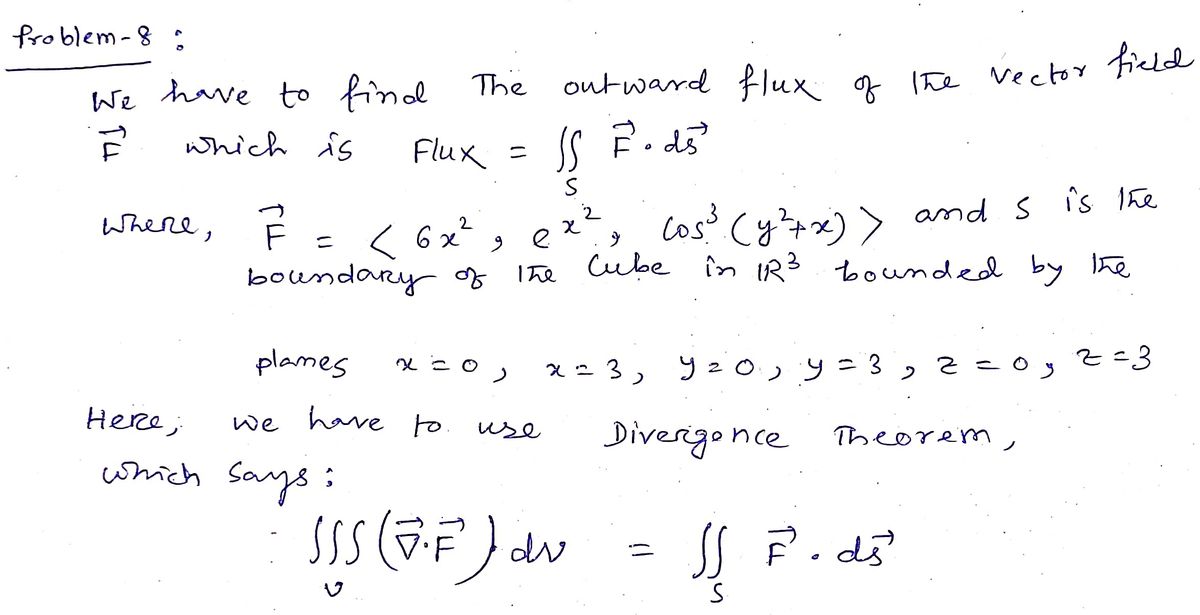 Problem-8 :
We have to find The outward flux of the vector field
F⃗ which is Flux = ∬_S F⃗ · ds⃗
where, F⃗ = < 6x², e^{x²}, cos³(y²+x) > and S is the
boundary of the cube in ℝ³ bounded by the
planes x = 0, x = 3, y = 0, y = 3, z = 0, z = 3
Here, we have to use Divergence Theorem,
which says;
∭_V (∇⃗·F⃗) dv = ∬_S F⃗ · ds⃗